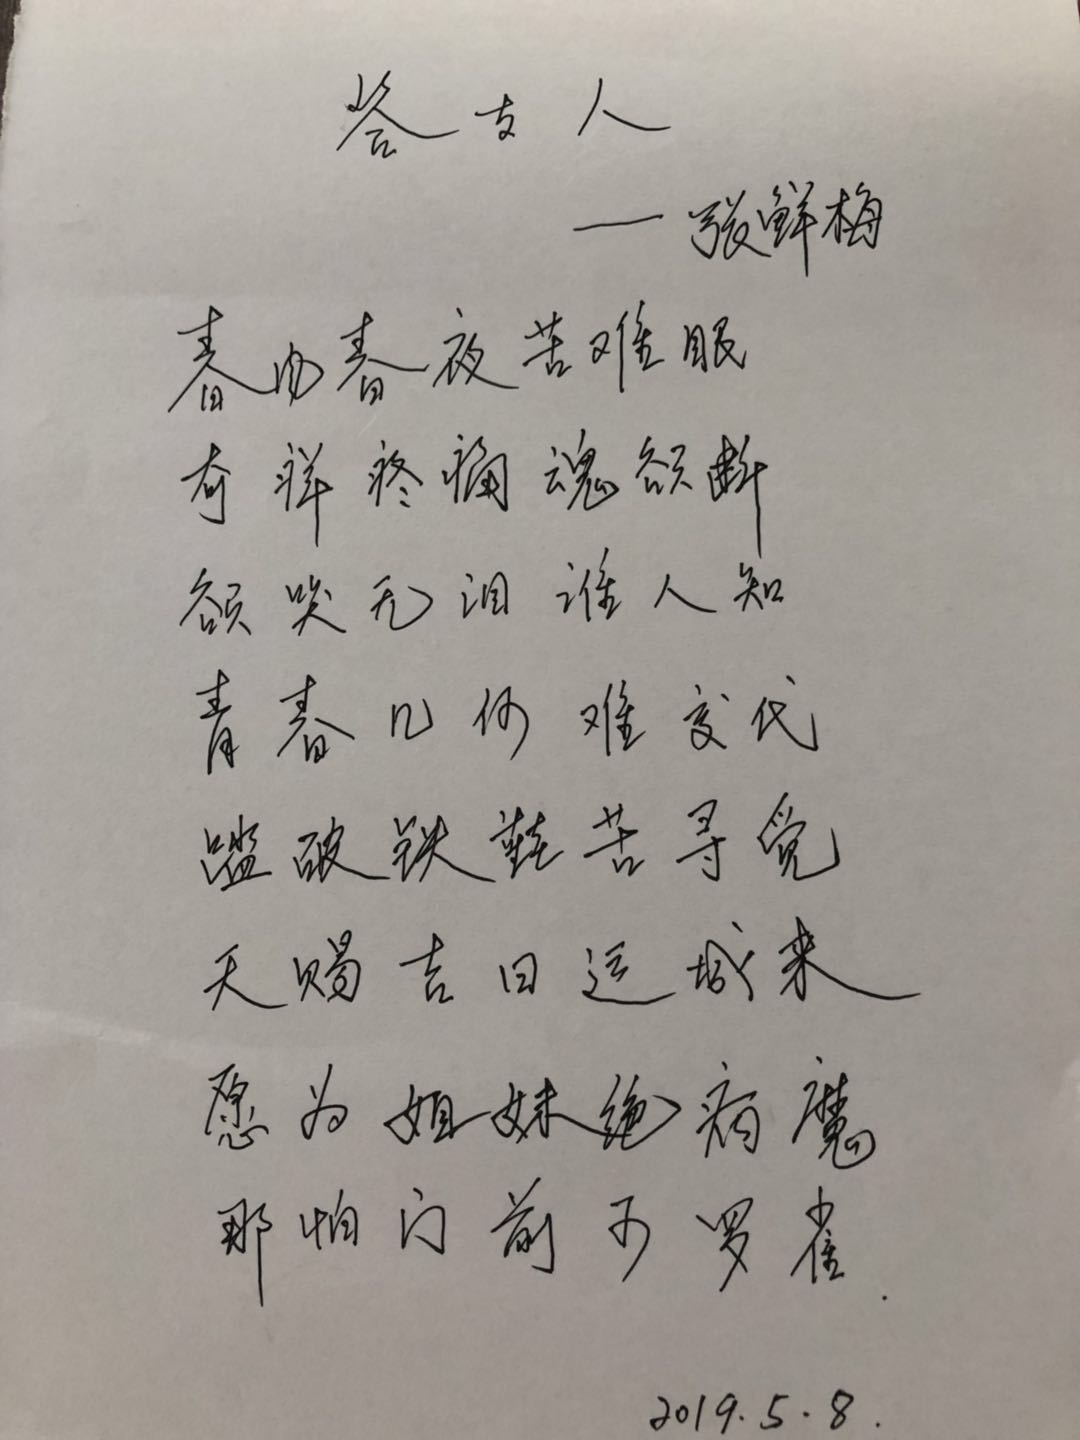 答友人
—张鲜梅
春内春夜苦难眠
奇痒疼痛魂欲断
欲哭无泪谁人知
青春几何难交代
踏破铁鞋苦寻觅
天赐吉日运城来
愿为姐妹绝病魔
那怕门前可罗雀.
2019.5.8.